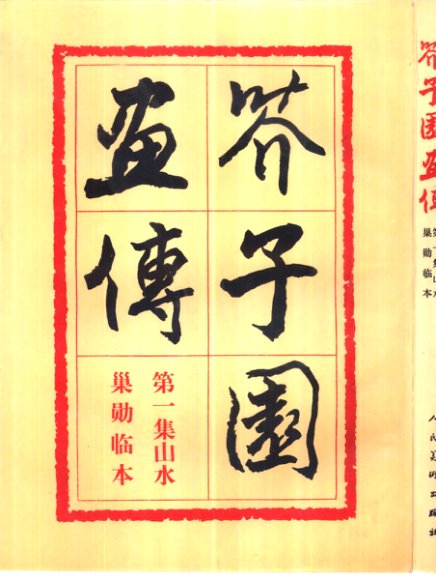 芥子園
畫傳
第一集山水
巢勛临本
芥子園畫傳
第一集山水
巢勛临本
人民美术出版社